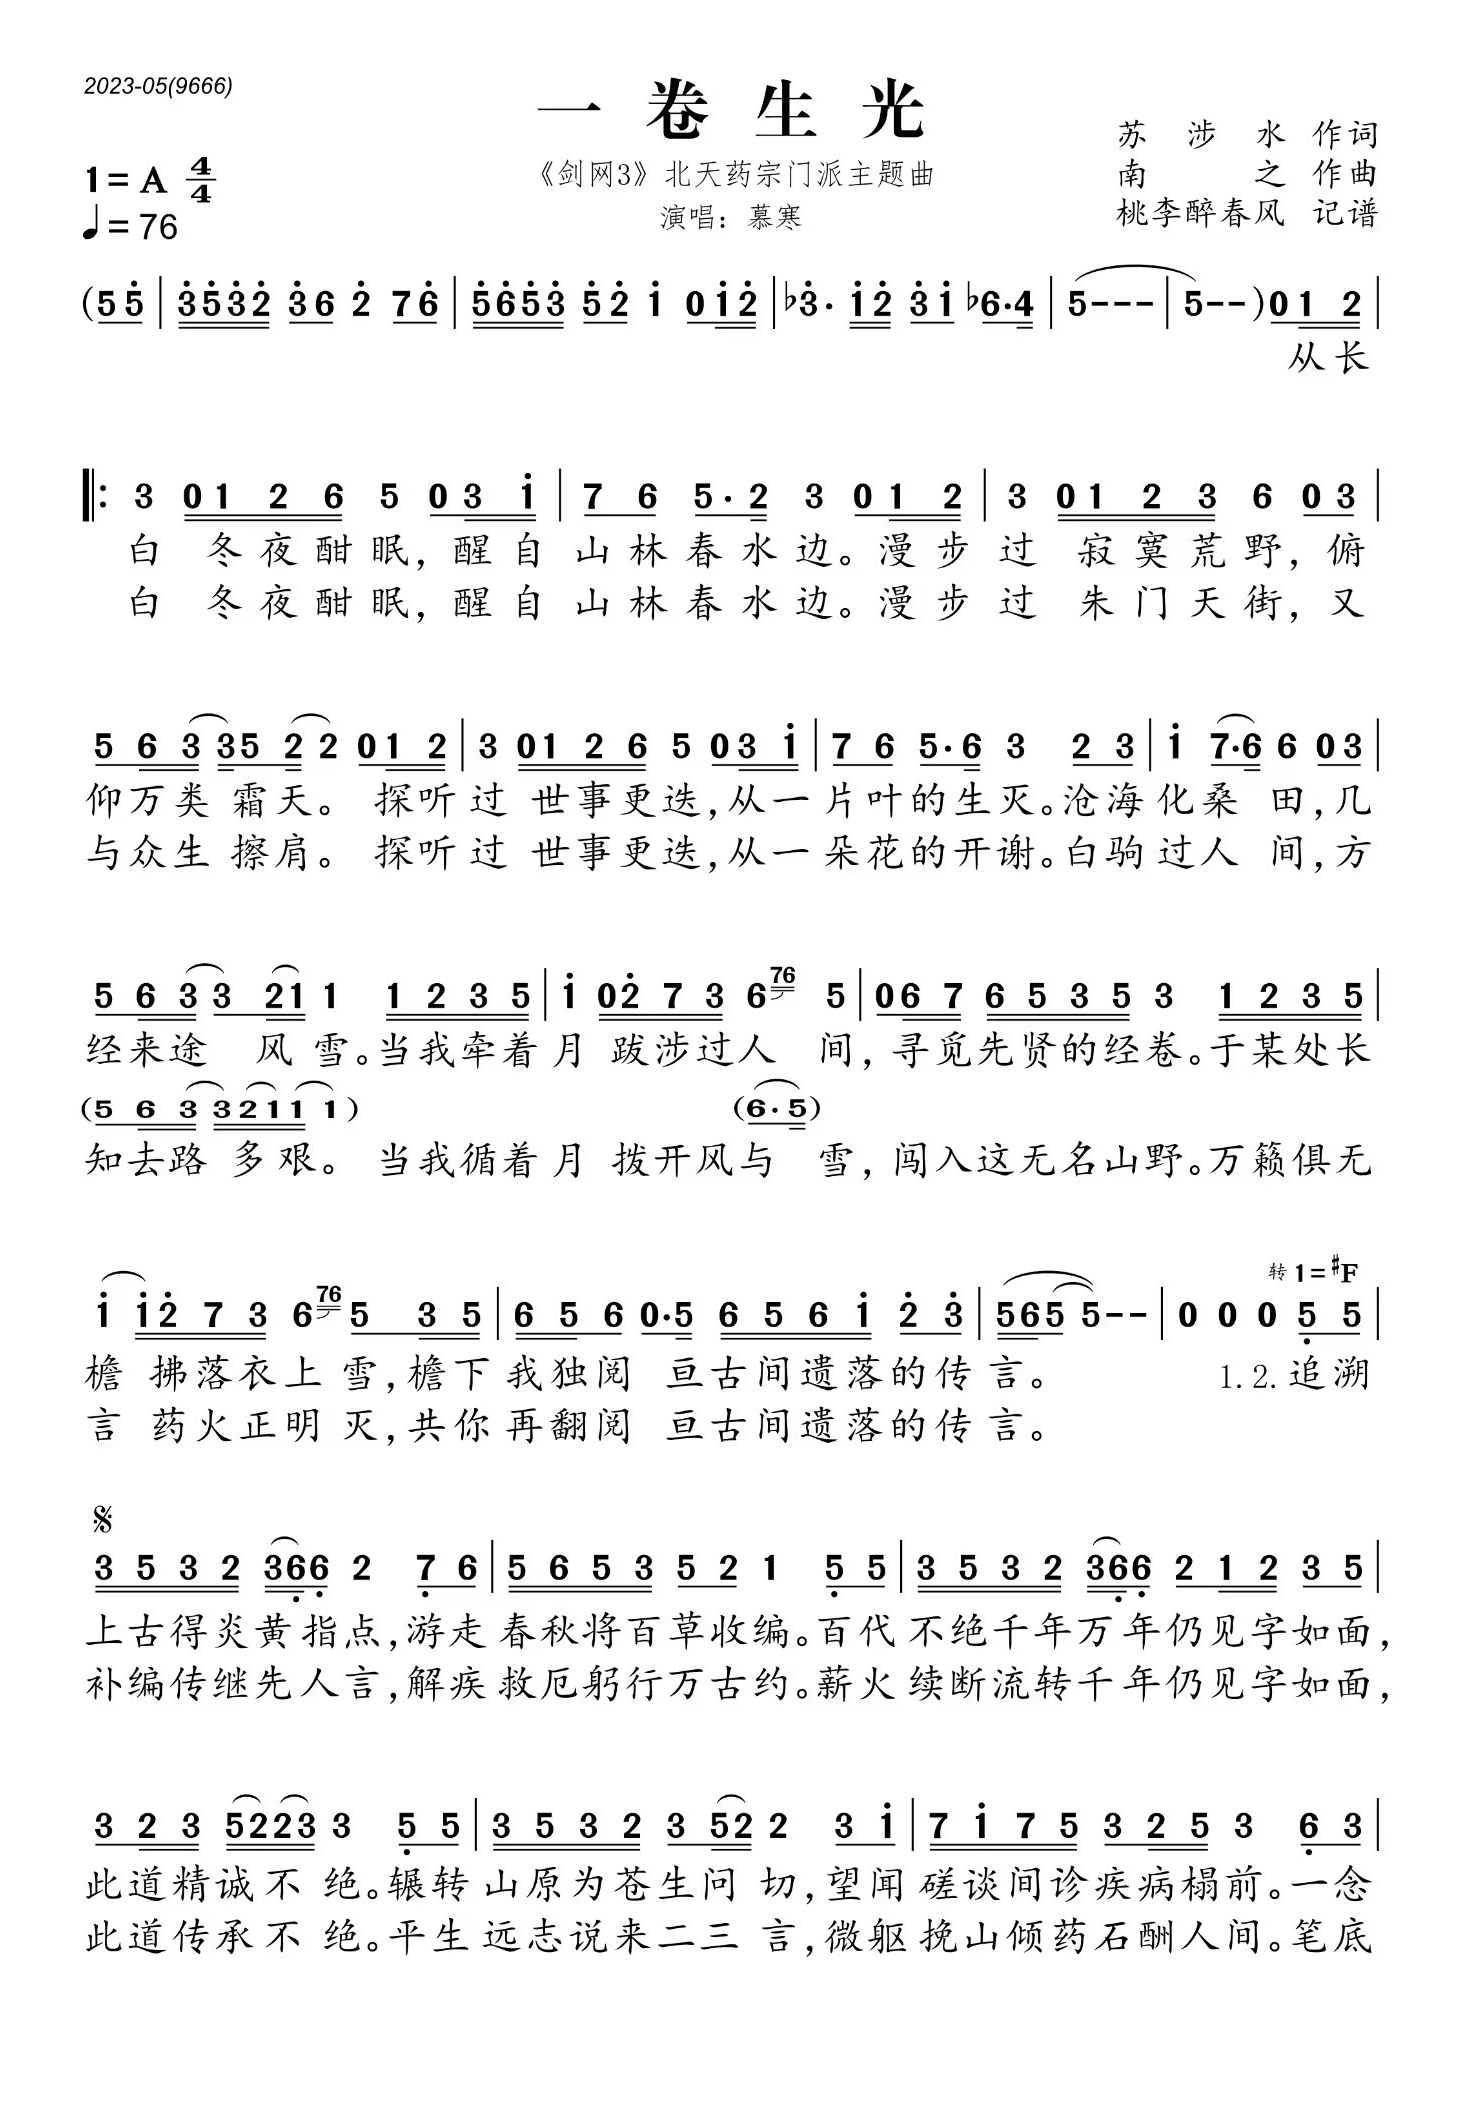 2023-05(9666)
一卷生光
《剑网3》北天药宗门派主题曲
演唱：慕寒
苏涉水 作词
南之 作曲
桃李醉春风 记谱
1=A 4/4
♩=76
(5 5̇ | 3̇5̇3̇2̇ 3̇6 2̇ 76̇ | 5̇6̇5̇3̇ 5̇2̇ 1̇ 01̇2̇ | ♭3̇· 1̇2̇ 3̇1̇ ♭6·4 | 5--- | 5--) 012 |
从长
‖: 3 0126 5 031̇ | 76 5·2 3 012 | 3 0123 6 03 |
白 冬夜酣眠，醒自山林春水边。漫步过 寂寞荒野，俯
白 冬夜酣眠，醒自山林春水边。漫步过 朱门天街，又
563 352 2 012 | 3 0126 5 031̇ | 76 5·6 3 23 | 1̇ 7·6 6 03 |
仰万类 霜天。 探听过 世事更迭，从一片叶的生灭。沧海化桑 田，几
与众生 擦肩。 探听过 世事更迭，从一朵花的开谢。白驹过人 间，方
563 3 21 1 1235 | 1̇ 02̇73 6 76 5 | 067 6535 3 1235 |
经来途 风雪。当我牵着月 跋涉过人 间，寻觅先贤的经卷。于某处长
(563 3211 1) (6·5)
知去路 多艰。 当我循着月 拨开风与 雪，闯入这无名山野。万籁俱无
转1=♯F
1̇ 1̇2̇73 6 76 5 35 | 656 0·5 6561̇ 2̇3̇ | 565 5-- | 0 0 0 5̣5 |
檐 拂落衣上 雪，檐下我独阅 亘古间遗落的传言。 1.2.追溯
言 药火正明 灭，共你再翻阅 亘古间遗落的传言。
𝄋
3532 36̣6̣ 2 7̣6 | 5653 52 1 5̣5 | 3532 36̣6̣ 212 35 |
上古得炎黄指点，游走春秋将百草收编。百代不绝千年万年仍见字如面，
补编传继先人言，解疾救厄躬行万古约。薪火续断流转千年仍见字如面，
323 5223 3 5̣5 | 3532 352 2 31̇ | 71̇75 325 3 6̣3 |
此道精诚不 绝。辗转山原为苍生问 切，望闻磋谈间诊疾病榻前。一念
此道传承不 绝。平生远志说来二三 言，微躯挽山倾药石酬人间。笔底